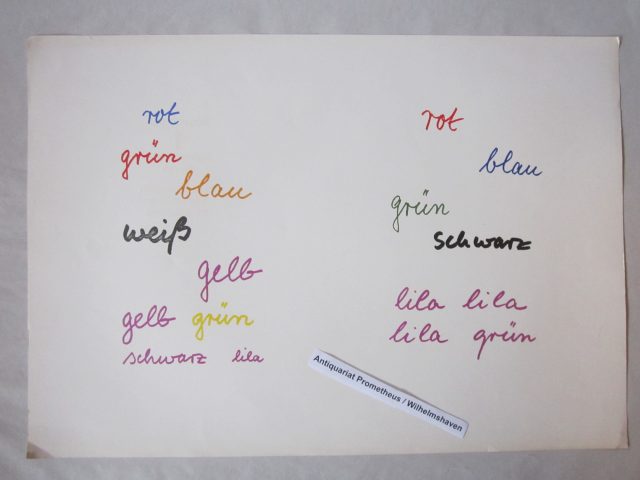 rot
grün
blau
weiß
gelb
gelb grün
schwarz lila
rot
blau
grün
schwarz
lila lila
lila grün
Antiquariat Prometheus / Wilhelmshaven